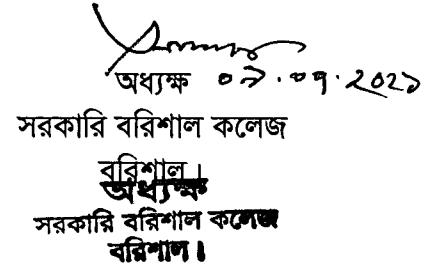 অধ্যক্ষ ০৭.০৭.২০২১
সরকারি বরিশাল কলেজ
বরিশাল।
অধ্যক্ষ
সরকারি বরিশাল কলেজ
বরিশাল।